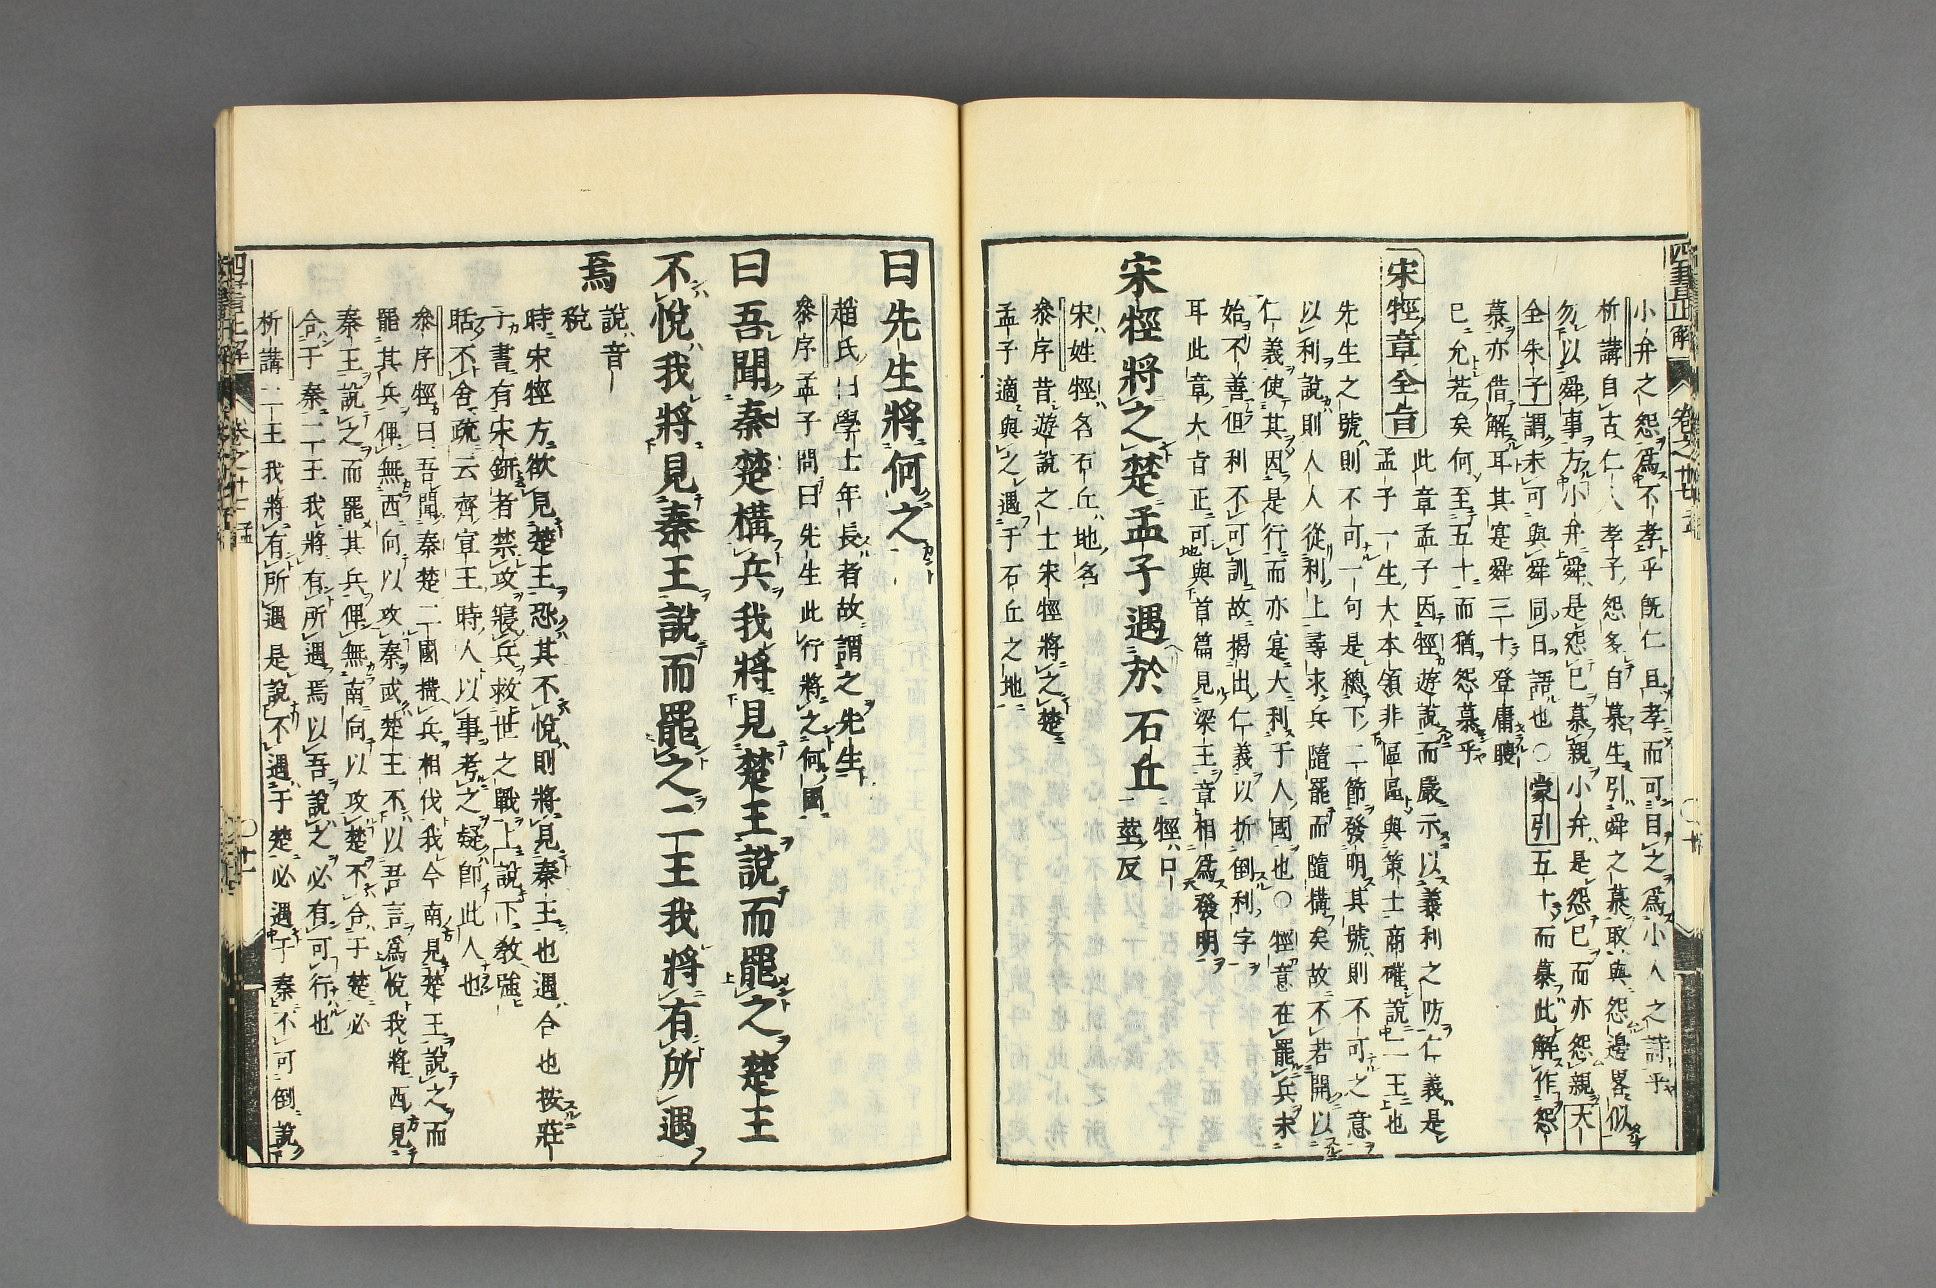 小弁之怨爲不孝乎旣仁且孝而可目之爲小人之詩乎
析講自古仁人孝子怨多自慕生引舜之慕敢與怨邊畧似
勿以舜事方小弁舜是怨已慕親小弁是怨已而亦怨親大
全朱子謂未可與舜同日語也○蒙引五十而慕此解作怨
慕亦借解耳其寔舜三十登庸
已允若矣何至五十而猶怨慕乎
宋牼章全旨
此章孟子因牼遊說而嚴示以義利之防仁義是
孟子一生大本領非區區與策士商確說二王也
先生之號則不可一句是總下二節發明其號則不可之意
以利說則人人從利上尋求兵隨罷而隨構矣故不若開以
仁義使其因是行而亦寔大利于人國也○牼意在罷兵未
始不善但利不可訓故揭出仁義以折倒利字
耳此章大旨正可與首篇見梁王章相爲發明
宋牼將之楚孟子遇於石丘
牼口
莖反
宋姓牼名石丘地名
參序昔遊說之士宋牼將之楚
孟子適與之遇于石丘之地
四書正解
卷之十七孟
曰先生將何之
趙氏曰學士年長者故謂之先生
參序孟子問曰先生此行將之何國
曰吾聞秦楚構兵我將見楚王說而罷之楚王
不悅我將見秦王說而罷之二王我將有所遇
焉
說音
稅
時宋牼方欲見楚王恐其不悅則將見秦王也遇合也按莊
子書有宋鈃者禁攻寢兵救世之戰上說下教強
聒不舍疏云齊宣王時人以事考之疑卽此人也
參序牼曰吾聞秦楚二國搆兵相伐我今南見楚王說之而
罷其兵俾無西向以攻秦或楚王不以吾言爲悅我將西見
秦王說之而罷其兵俾無南向以攻楚不合于楚必
合于秦二王我將有所遇焉以吾說之必有可行也
析講二王我將有所遇是說不遇于楚必遇于秦不可倒說